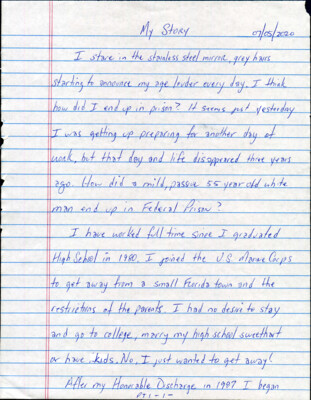 My Story 07/05/2020
I stare in the stainless steel mirror, grey hairs
starting to announce my age louder every day. I think
how did I end up in prison? It seems just yesterday
I was getting up preparing for another day of
work, but that day and life disappeared three years
ago. How did a mild, passive 55 year old white
man end up in Federal Prison?
I have worked full time since I graduated
High School in 1980. I joined the U.S. Marine Corps
to get away from a small Florida town and the
restrictions of the parents. I had no desire to stay
and go to college, marry my high school sweethart
or have kids. No, I just wanted to get away!
After my Honorable Discharge in 1987 I began